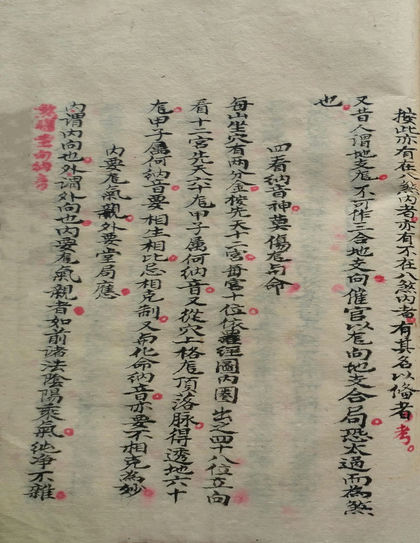 按此亦有在八煞內者亦有不在煞內者有其名以俻者考
又昔人謂地支龙不可作三合地支向催官以龙向地支合局恐太過而為煞
也
四看納音神莫傷龙与命
每山坐穴有两分金按先天十二宮每宮十位依羅經圖內圈出之四十八位立向
看十二宮先天六十龙甲子屬何納音又從穴上格龙頂落脉得透地六十
龙甲子屬何納音要相生相比忌相克制又而化命納音亦要不相克為妙
內要龙氣親外要堂局應
內謂內向也外謂外向也內要龙氣親者如前诸法陰陽乘氣纯净不雜